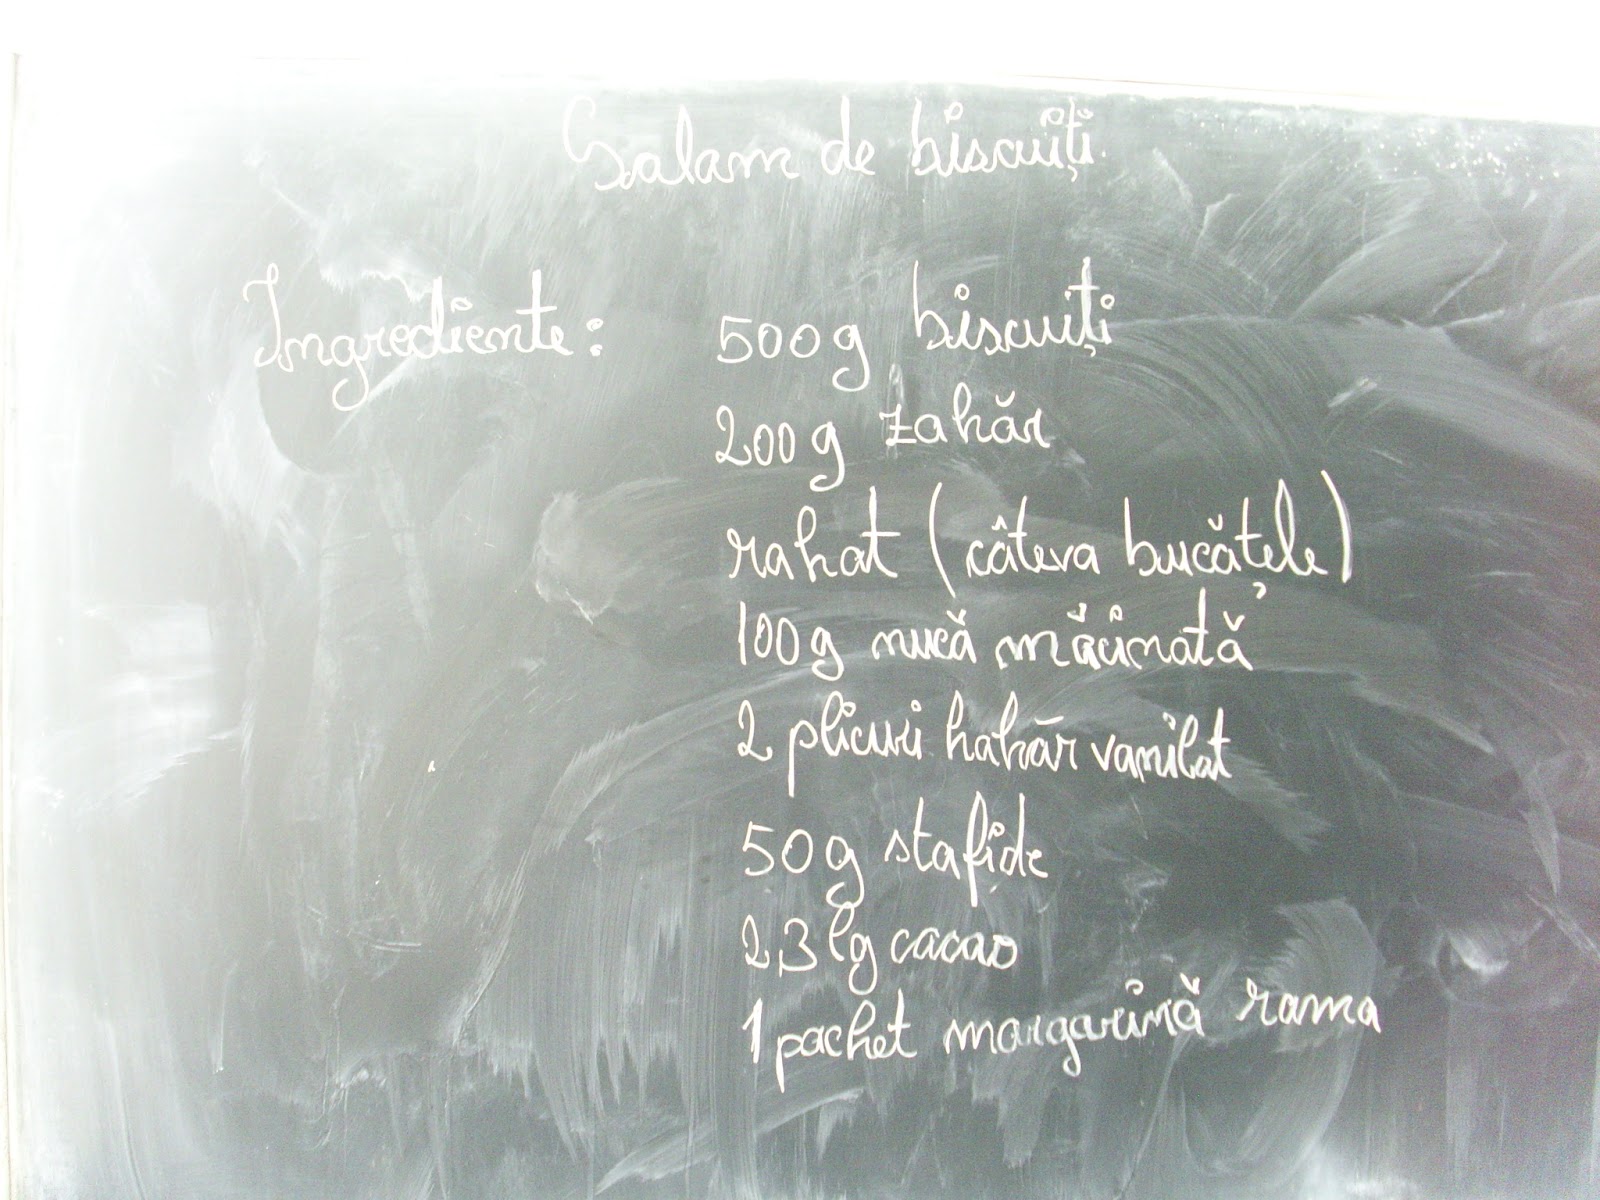 Salam de biscuiți
Ingrediente: 500g biscuiți
200g zahăr
rahat (câteva bucățele)
100g nucă măcinată
2 plicuri hahăr vanilat
50g stafide
2,3 lg cacao
1 pachet margarină rama